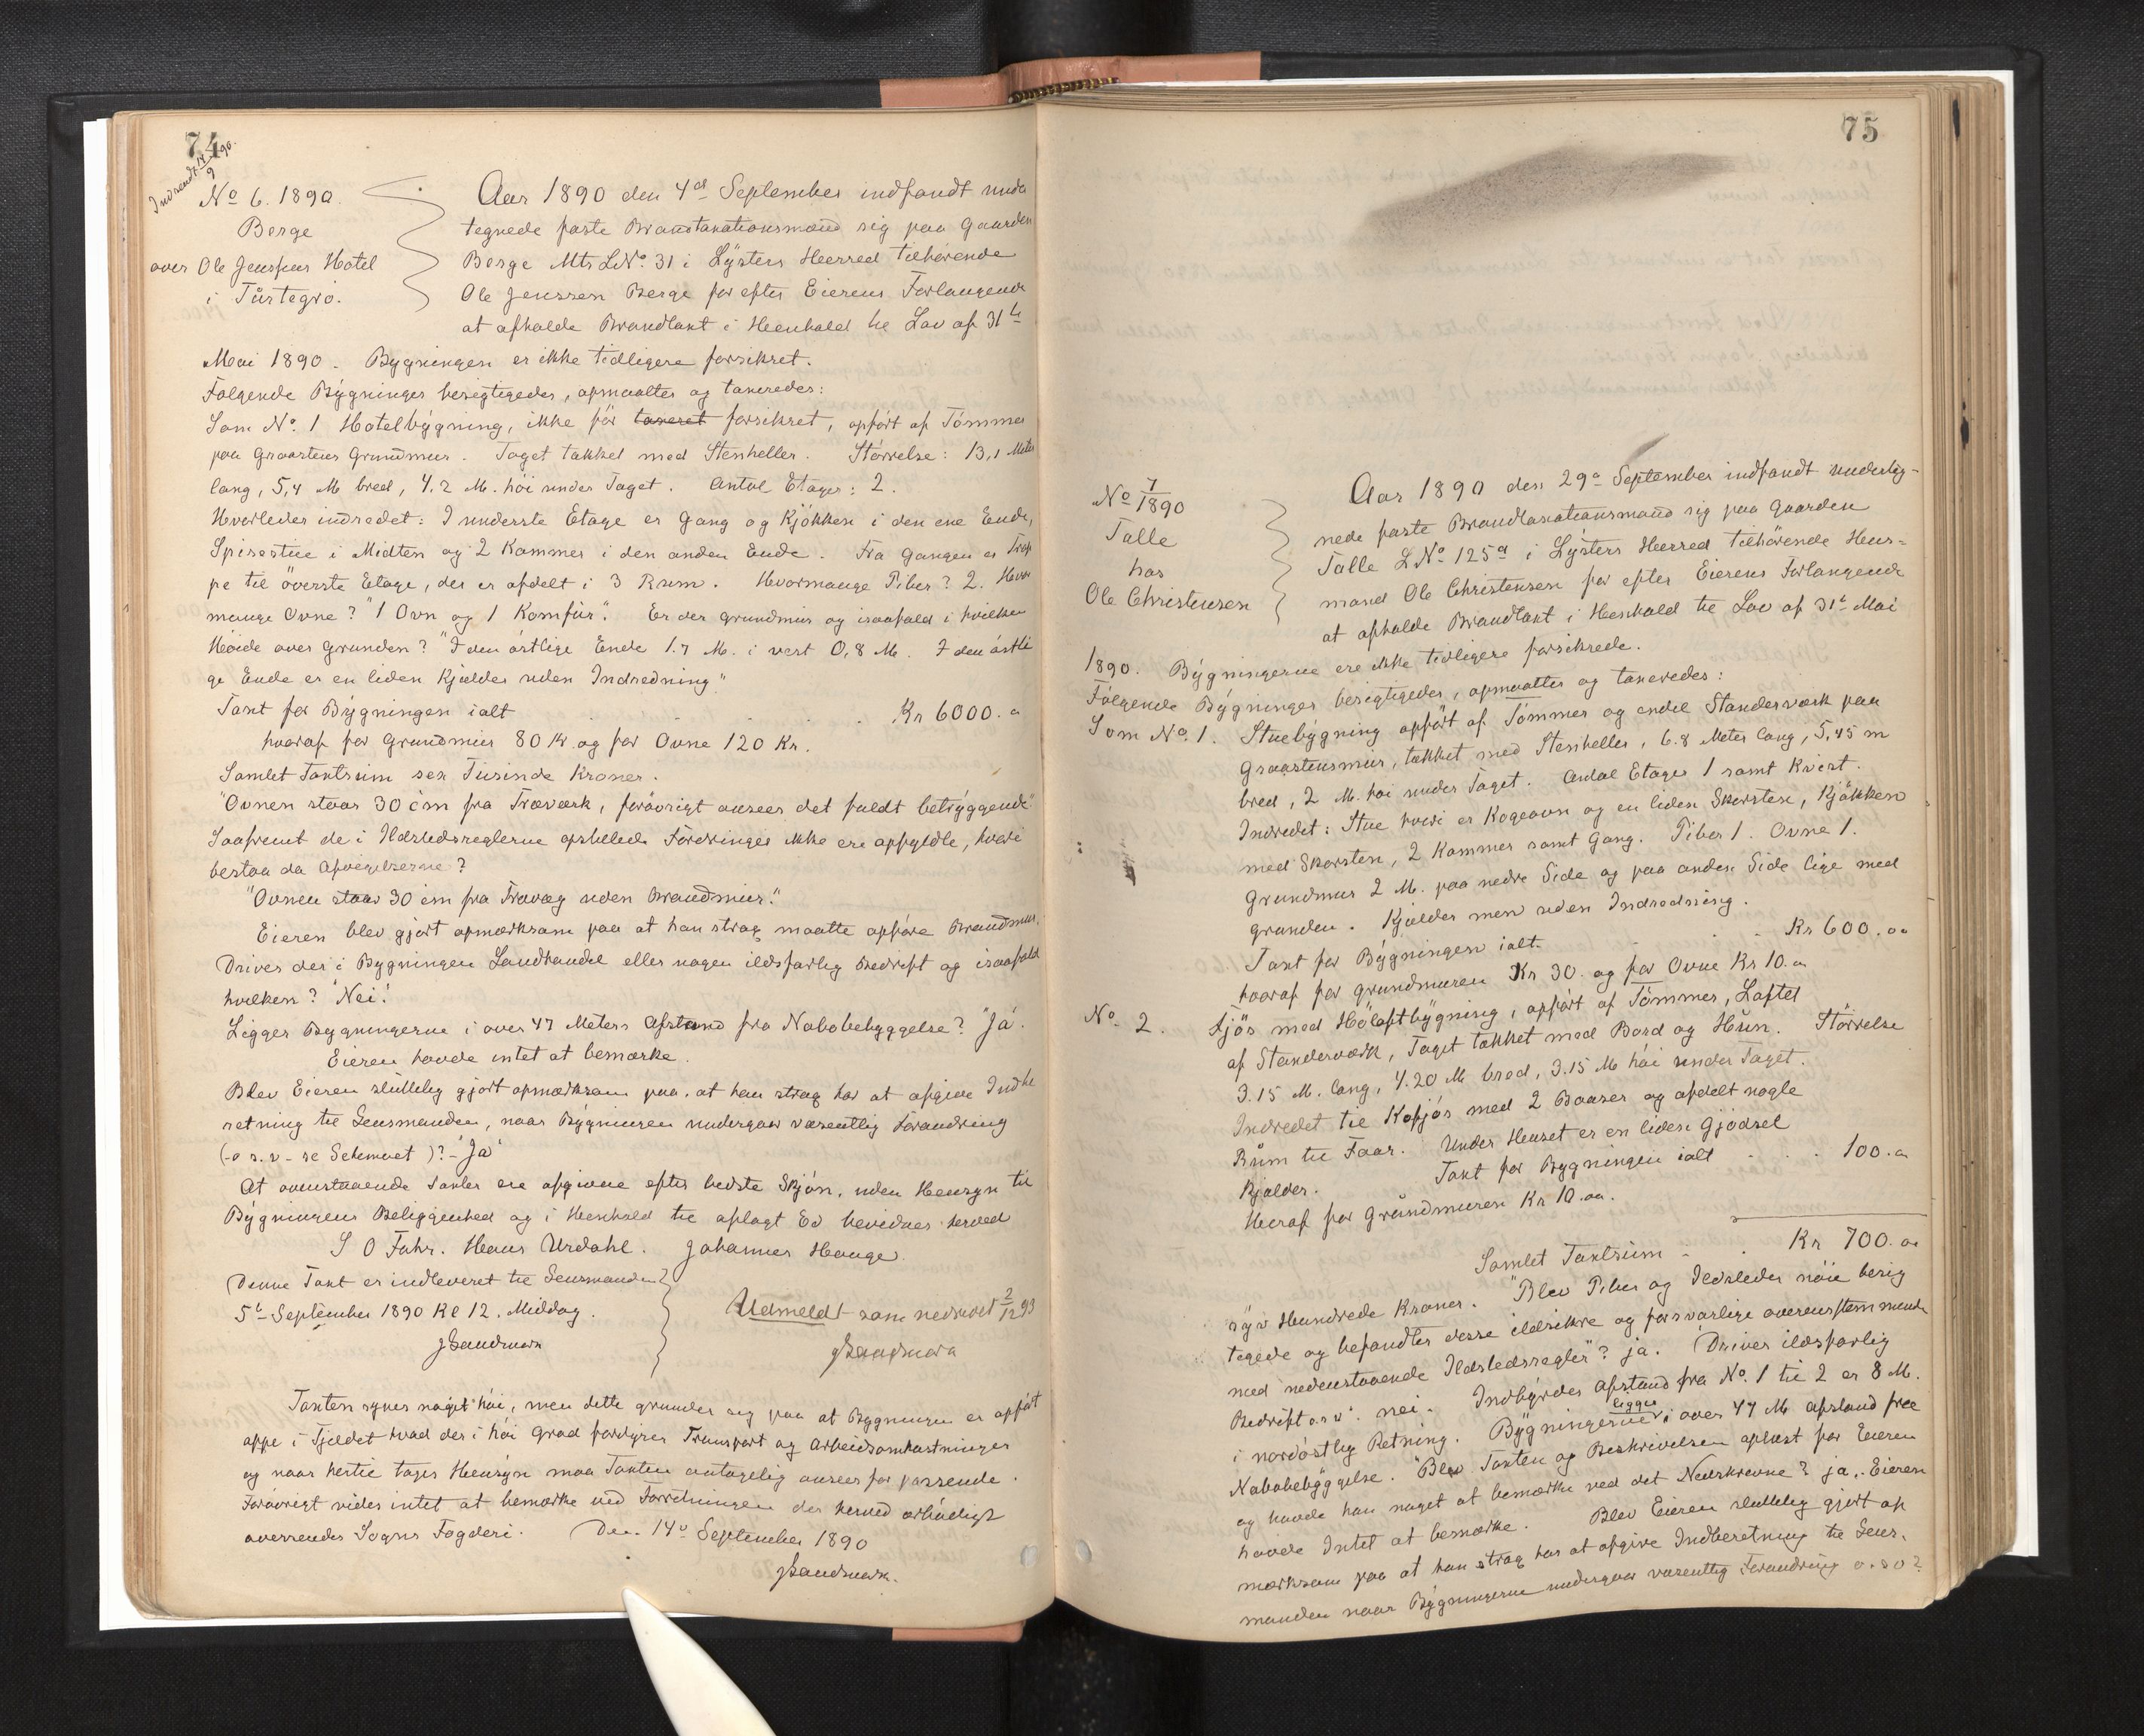 74
Indsendt 14/9 90.
No 6. 1890.
Berge
over Ole Jenssens Hotel
i Türtegrö.
Aar 1890 den 4de September indfandt under
tegnede faste Brandtaxationsmænd sig paa Gaarden
Berge Mts LNo. 31 i Lysters Herred tilhörende
Ole Jenssen Berge for efter Eierens Forlangende
at afholde Brandtaxt i Henhold til Lov af 31te
Mai 1890. Bygningen er ikke tidligere forsikret.
Fölgende Bygninger besigtigedes, opmaaltes og taxeredes:
Som No. 1 Hotelbygning, ikke för taxeret forsikret, opfört af Tömmer
paa Graastens Grundmur. Taget tækket med Stenheller. Störrelse: 13,1 Meter
lang, 5,4 M bred, 4.2 M. höi under Taget. Antal Etager: 2.
Hvorledes indredet: I underste Etage er Gang og Kjökken i den ene Ende,
Spisestue i Midten og 2 Kammer i den anden Ende. Fra Gangen er Trap
pe til överste Etage, der er afdelt i 3 Rum. Hvormange Piber? 2. Hvor
mange Ovne? "1 Ovn og 1 Komfür". Er der grundmur og isaafald i hvilken
Höide over Grunden? "I den östlige Ende 1.7 M. i vest 0,8 M. I den östli
ge Ende er en liden Kjælder uden Indredning"
Taxt for Bygningen ialt . . . . . Kr 6000.00
hvoraf for Grundmur 80 Kr og for Ovne 120 Kr.
Samlet Taxtsum sex Tusinde Kroner.
"Ovnen staar 30 cm fra Træværk, forövrigt ansees det fuldt betryggende"
Saafremt de i Ildstedsreglerne opstillede Fordringer ikke ere opfyldte, hvori
bestaa da Afvigelserne?
"Ovnen staar 30 cm fra Trævæg uden Brandmur."
Eieren blev gjort opmærksom paa at han strax maatte opföre Brandmur.
Drives der i Bygningen Landhandel eller nogen ildsfarlig Bedrift og isaafald
hvilken? "Nei".
Ligger Bygningerne i over 47 Meters Afstand fra Nabobebyggelse? "Ja".
Eieren havde intet at bemærke.
Blev Eieren sluttelig gjort opmærksom paa, at han strax har at afgive Indbe
retning til Lensmanden, naar Bygningen undergaar væsentlig Forandring
(- o s. v - se Schemaet)? - "Ja"
At ovenstaaende Taxter ere afgivne efter bedste Skjön, uden Hensyn til
Bygningens Beliggenhed og i Henhold til aflagt Ed bevidnes herved
S O Fuhr. Hans Urdahl. Johannes Hauge.
Denne Taxt er indleveret til Lensmanden
5te September 1890 Kl 12. Middag.
JSandmark
Udmeldt som nedrevet 2/12 93
JSandmark
Taxten synes noget höi, men dette grunder sig paa at Bygningen er opfört
oppe i Fjeldet hvad der i höi Grad fordyrer Transport og Arbeidsomkostninger
og naar hertil tages Hensyn maa Taxten antagelig ansees for passende.
Forövrigt vides intet at bemærke ved Forretningen der herved ærbödigst
oversendes Sogns Fogderi. Den 14de September 1890
JSandmark.
75
No 7/1890
Talle
hos
Ole Christensen
Aar 1890 den 29de September indfandt underteg-
nede faste Brandtaxationsmænd sig paa Gaarden
Talle LNo 125a i Lysters Herred tilhörende Hus-
mand Ole Christensen for efter Eierens Forlangende
at afholde Brandtaxt i Henhold til Lov af 31te Mai
1890. Bygningerne ere ikke tidligere forsikrede.
Fölgende Bygninger besigtigedes, opmaaltes og taxeredes:
Som No. 1. Stuebygning opfört af Tömmer og endel Standerværk paa
Graastensmur, tækket med Stenheller, 6.8 Meter lang, 5,45 m
bred, 2 M. höi under Taget. Antal Etager 1 samt Kvist.
Indredet: Stue hvori er Kogeovn og en liden Skorsten, Kjökken
med Skorsten, 2 Kammer samt Gang. Piber 1. Ovne 1.
Grundmur 2 M. paa nedre Side og paa anden Side lige med
Grunden. Kjælder men uden Indredning.
Taxt for Bygningen ialt . . . Kr 600.00
hvoraf for Grundmuren Kr 30. og for Ovne Kr 10.00
No. 2. Fjös med Höloftbygning, opfört af Tömmer, Loftet
af Standerværk, Taget tækket med Bord og Hün. Störrelse
3.15 M. lang, 4.20 M bred, 3.15 M höi under Taget.
Indredet til Kofjös med 2 Baaser og afdelt nogle
Rüm til Faar. Under Huset er en liden Gjödsel
Kjælder. Taxt for Bygningen ialt . . . 100.00
Heraf for Grundmuren Kr 10.00.
Samlet Taxtsum - . Kr 700.00
syv Hundrede Kroner. "Blev Piber og Ildsteder nöie besig
tigede og befandtes disse ildsikre og forsvarlige overensstemmende
med nedenstaaende Ildstedsregler"? ja. Drives ildsfarlig
Bedrift o. s. v". nei. Indbyrdes Afstand fra No. 1 til 2 er 8 M.
i nordöstlig Retning. Bygningerne ligger i over 47 M Afstand fra
Nabobebyggelse. "Blev Taxten og Beskrivelsen oplæst for Eieren
og havde han noget at bemærke ved det Nedskrevne? ja,. Eieren
havde Intet at bemærke. Blev Eieren sluttelig gjort op
mærksom paa at han strax har at afgive Indberetning til Lens-
manden naar Bygningerne undergaar væsentlig Forandring o. s v?